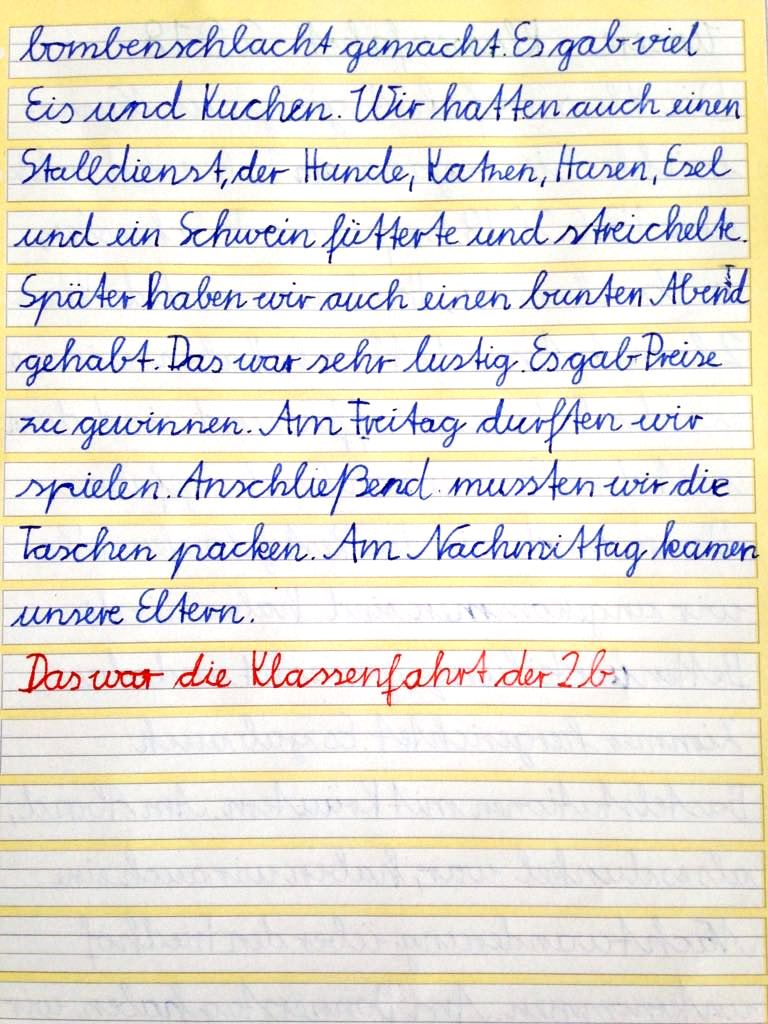 bombenschlacht gemacht. Es gab viel
Eis und Kuchen. Wir hatten auch einen
Stalldienst, der Hunde, Katzen, Hasen, Esel
und ein Schwein fütterte und streichelte.
Später haben wir auch einen bunten Abend
gehabt. Das war sehr lustig. Es gab Preise
zu gewinnen. Am Freitag durften wir
spielen. Anschließend mussten wir die
Taschen packen. Am Nachmittag kamen
unsere Eltern.
Das war die Klassenfahrt der 2b.